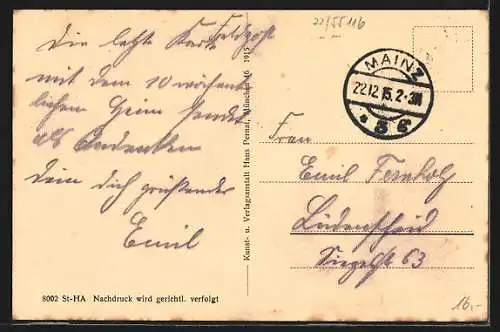 Feldpost
Die letzte Karte
mit dem 10 wöchent
lichen Heim sendet
als Andenken
Dein dich grüßender
Emil
8002 St-HA Nachdruck wird gerichtl. verfolgt
Kunst- u. Verlagsanstalt Hans Pernat, München 16 1915
22/55116
MAINZ
22.12.15.2-3N
* 5 c
Frau
Emil Fernholz
Lüdenscheid
Siegesstr 63
16,-